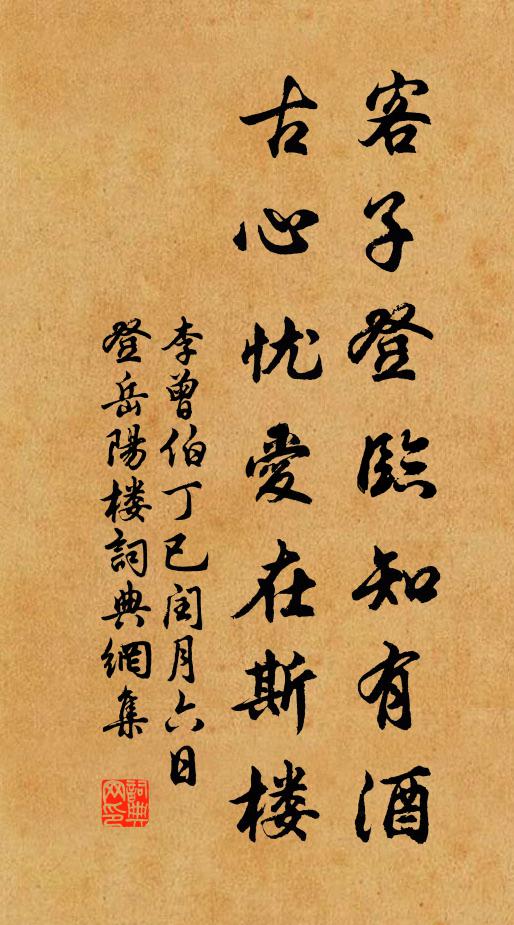 客子登臨知有酒
古心忧愛在斯楼
李曾伯丁巳闰月六日
登岳陽楼詞典網集
詞典
网印